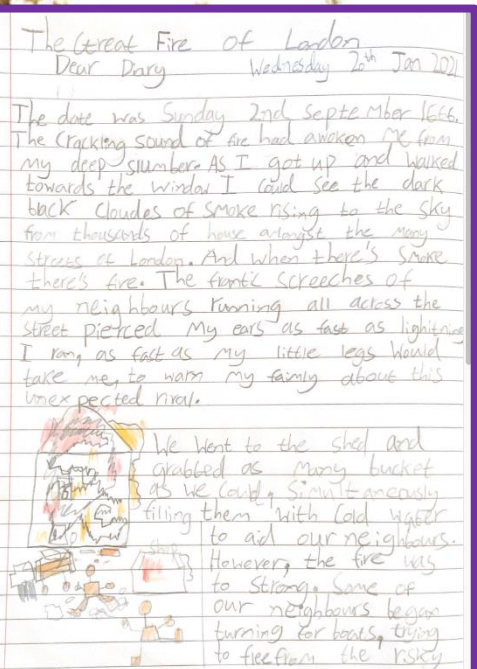 The Great Fire of London
Dear Diary Wednesday 20th Jan 2021
The date was Sunday 2nd September 1666.
The Cracking sound of fire had awoken me from
my deep slumber. As I got up and walked
towards the window I could see the dark
black cloudes of smoke rising to the sky
from thousands of house amongst the many
streets of London. And when there's smoke
there's fire. The frantic screeches of
my neighbours running all across the
street pierced my ears as fast as lightning
I ran, as fast as my little legs would
take me, to warn my faimly about this
unexpected rival.
We went to the shed and
grabbed as many bucket
as we could, simultaneously
filling them with cold water
to aid our neighbours.
However, the fire was
to strong. Some of
our neighbours began
turning for boats, trying
to flee from the risky